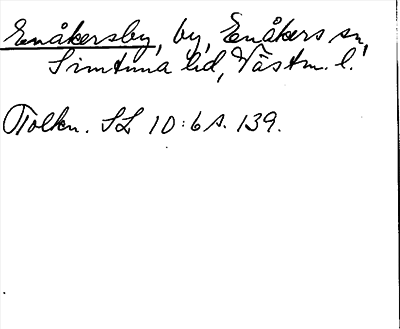 Enåkersby, by, Enåkers sn,
Simtuna hd, Västm. l.
Tolkn. SL 10:6 s. 139.